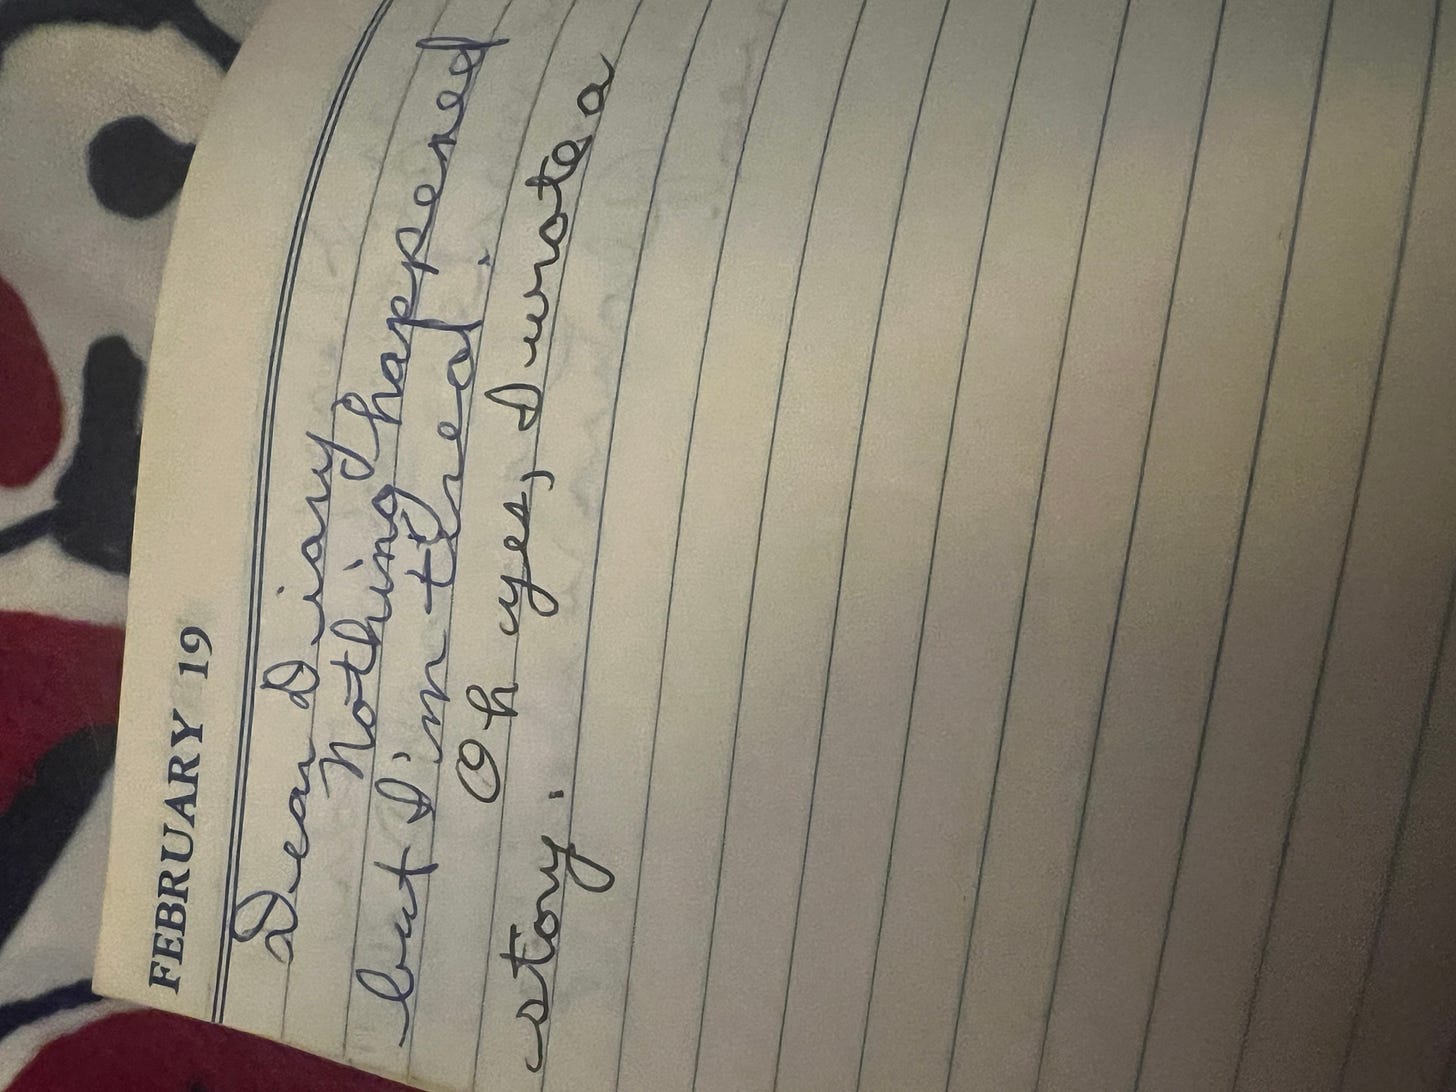 FEBRUARY 19
Dear Diary
Nothing happened
but I'm tired.
Oh yes, I wrote a
story.